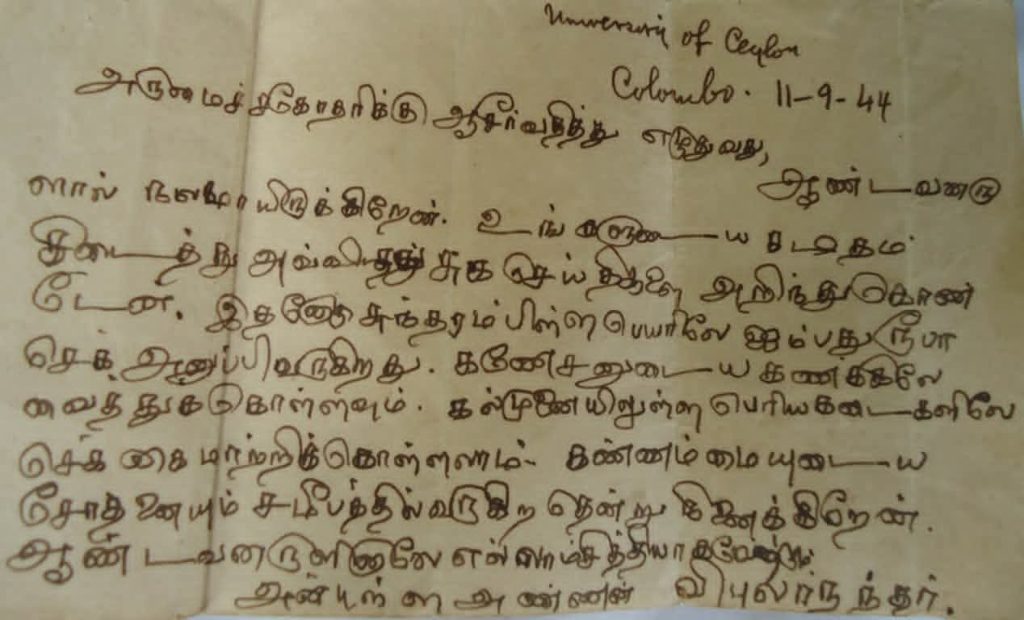 University of Ceylon
Colombo. 11-9-44
அருமைச் சகோதரிக்கு ஆசீர்வதித்து எழுதுவது,
ஆண்டவனரு
ளால் நலமாயிருக்கிறேன். உங்களுடைய கடிதம்
கிடைத்து அவ்விடத்து சுக செய்திகளை அறிந்துகொண்
டேன். இதனோடு சுந்தரம்பிள்ளை பெயரிலே ஐம்பது ரூபா
செக் அனுப்பிவருகிறது. கணேசனுடைய கணக்கிலே
வைத்துக்கொள்ளவும். கல்முனையிலுள்ள பெரியகடைகளிலே
செக் கை மாற்றிக்கொள்ளலாம். கண்ணம்மையுடைய
சோதனையும் சமீபத்தில்வருகிறதென்று நினைக்கிறேன்.
ஆண்டவனருளினாலே எல்லாம்சித்தியாகவேண்டும்
அன்புள்ள அண்ணன் விபுலாநந்தர்.